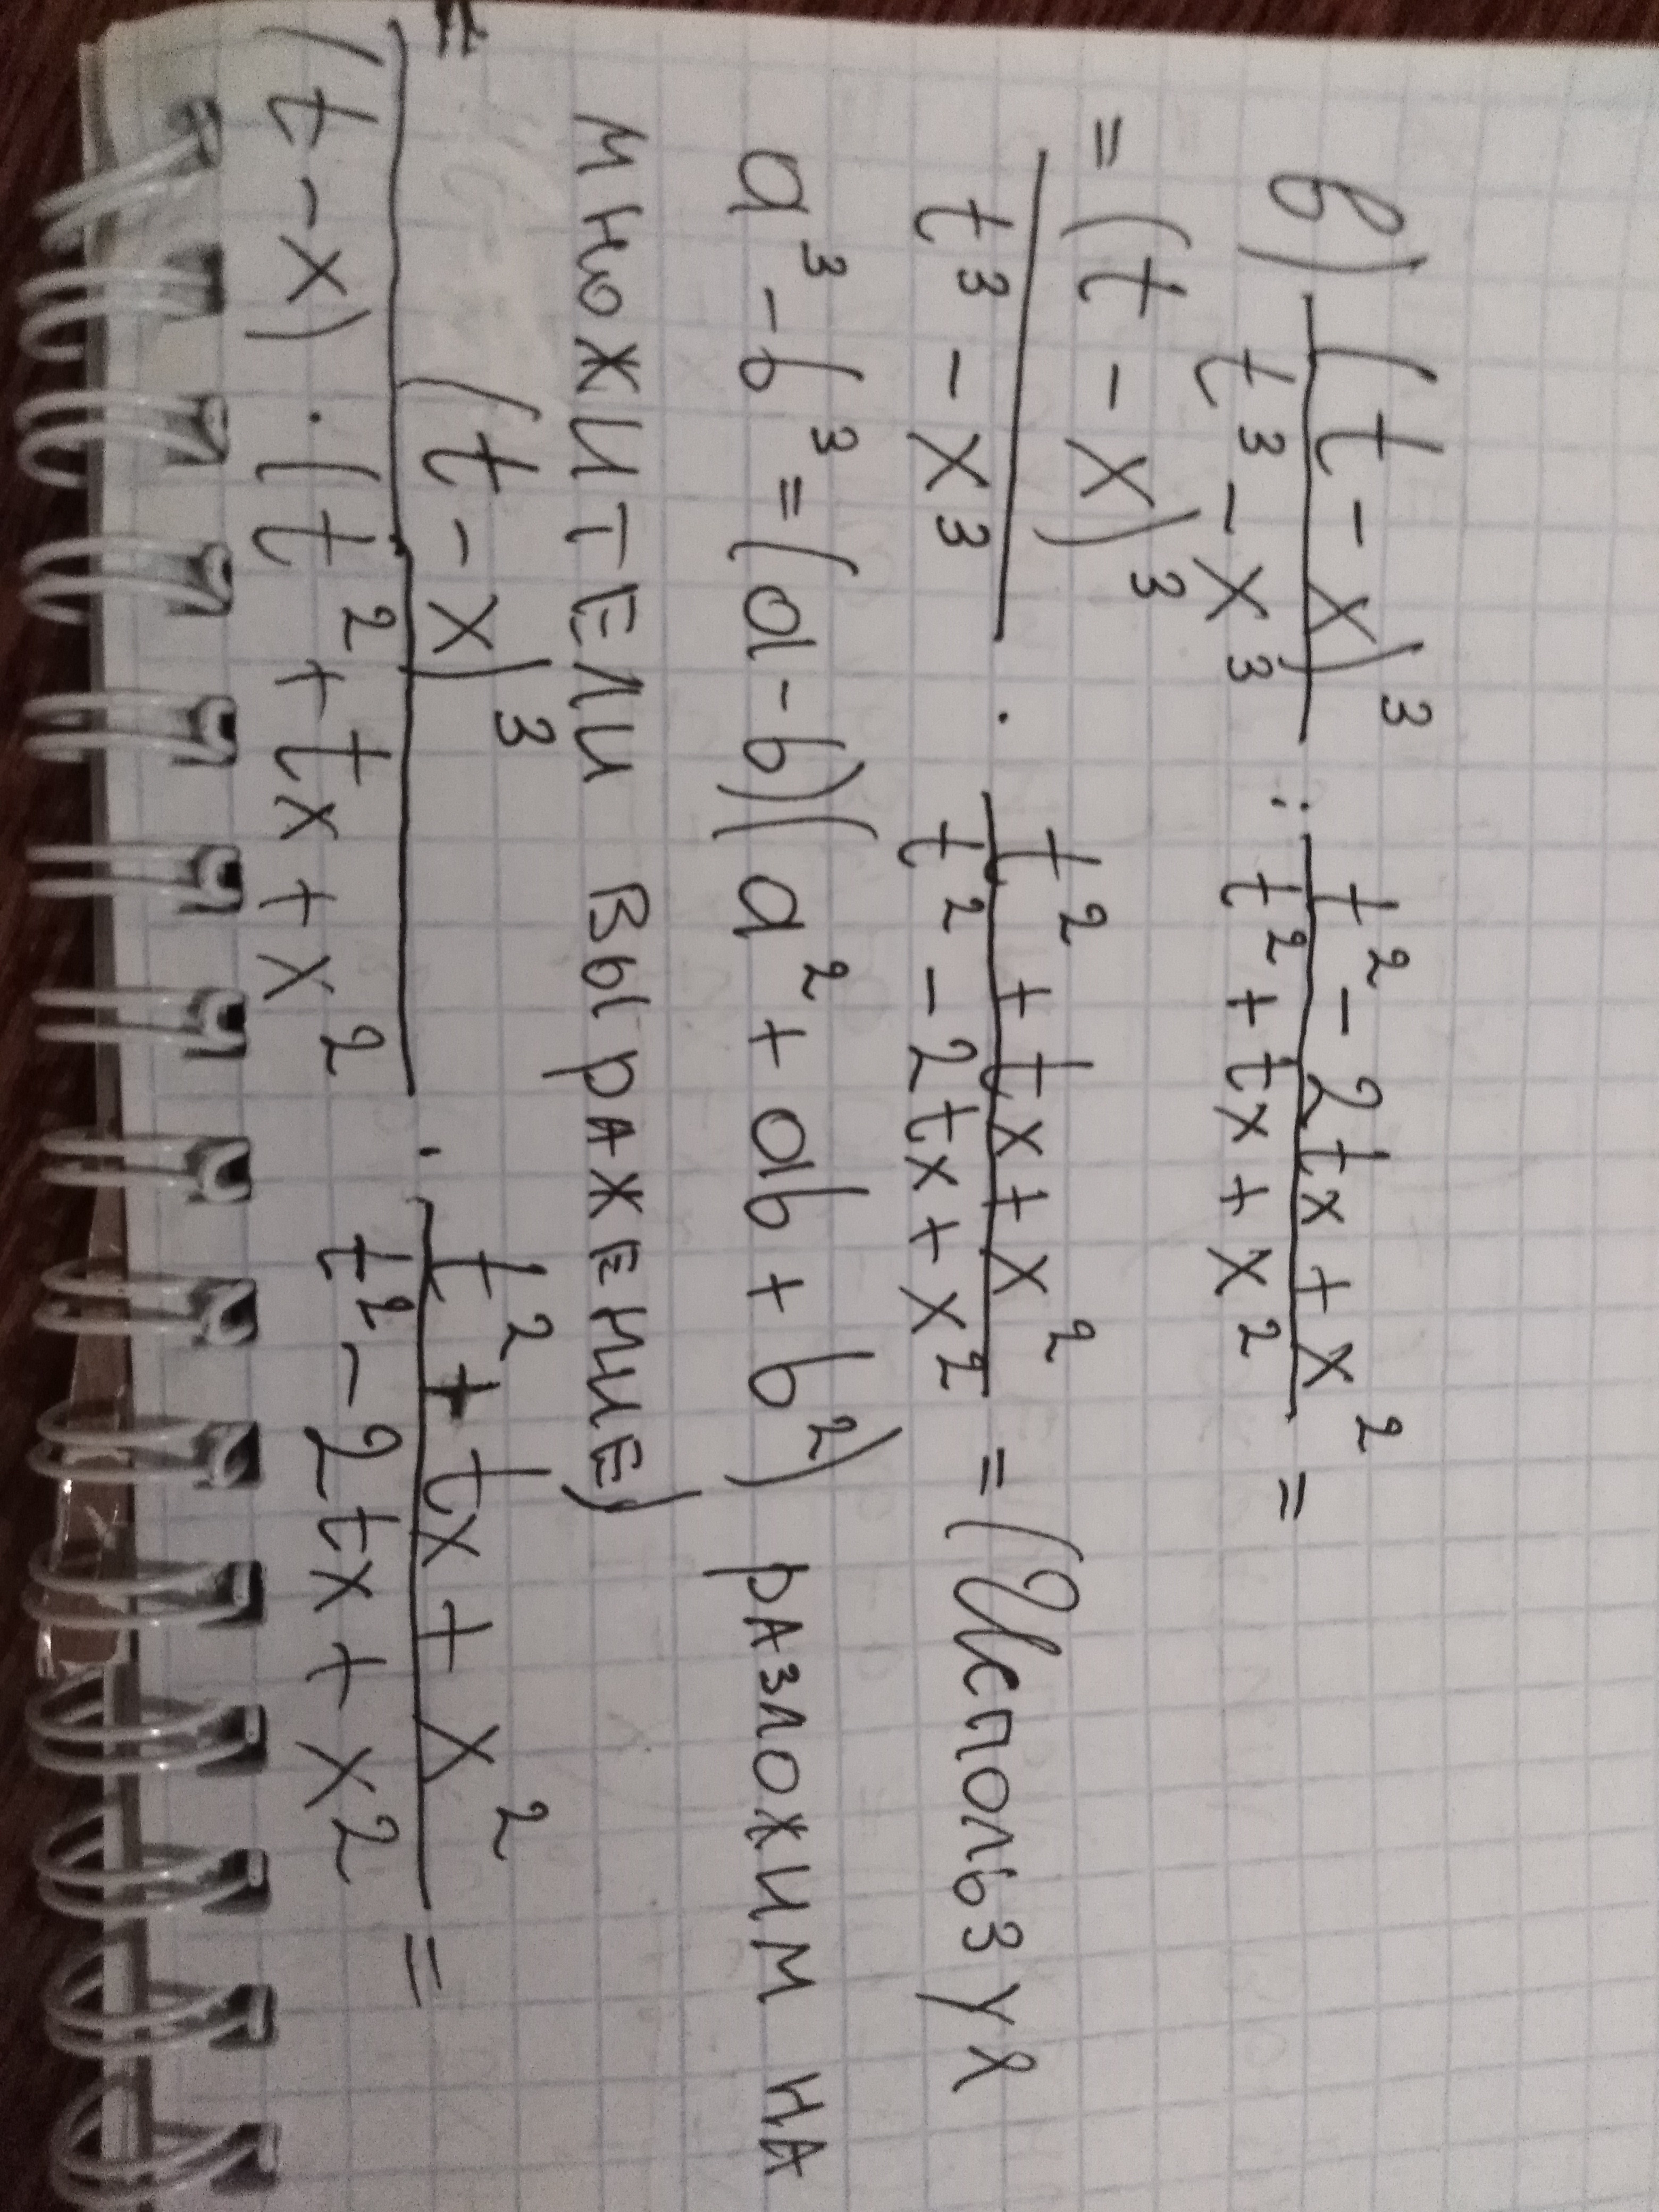 в) (t - x)³ / (t³ - x³) : (t² - 2tx + x²) / (t² + tx + x²) =
= (t - x)³ / (t³ - x³) · (t² + tx + x²) / (t² - 2tx + x²) = (Используя
a³ - b³ = (a - b)(a² + ab + b²) разложим на
множители выражение)
= (t - x)³ / (t - x) · (t² + tx + x²) · (t² + tx + x²) / (t² - 2tx + x²) =